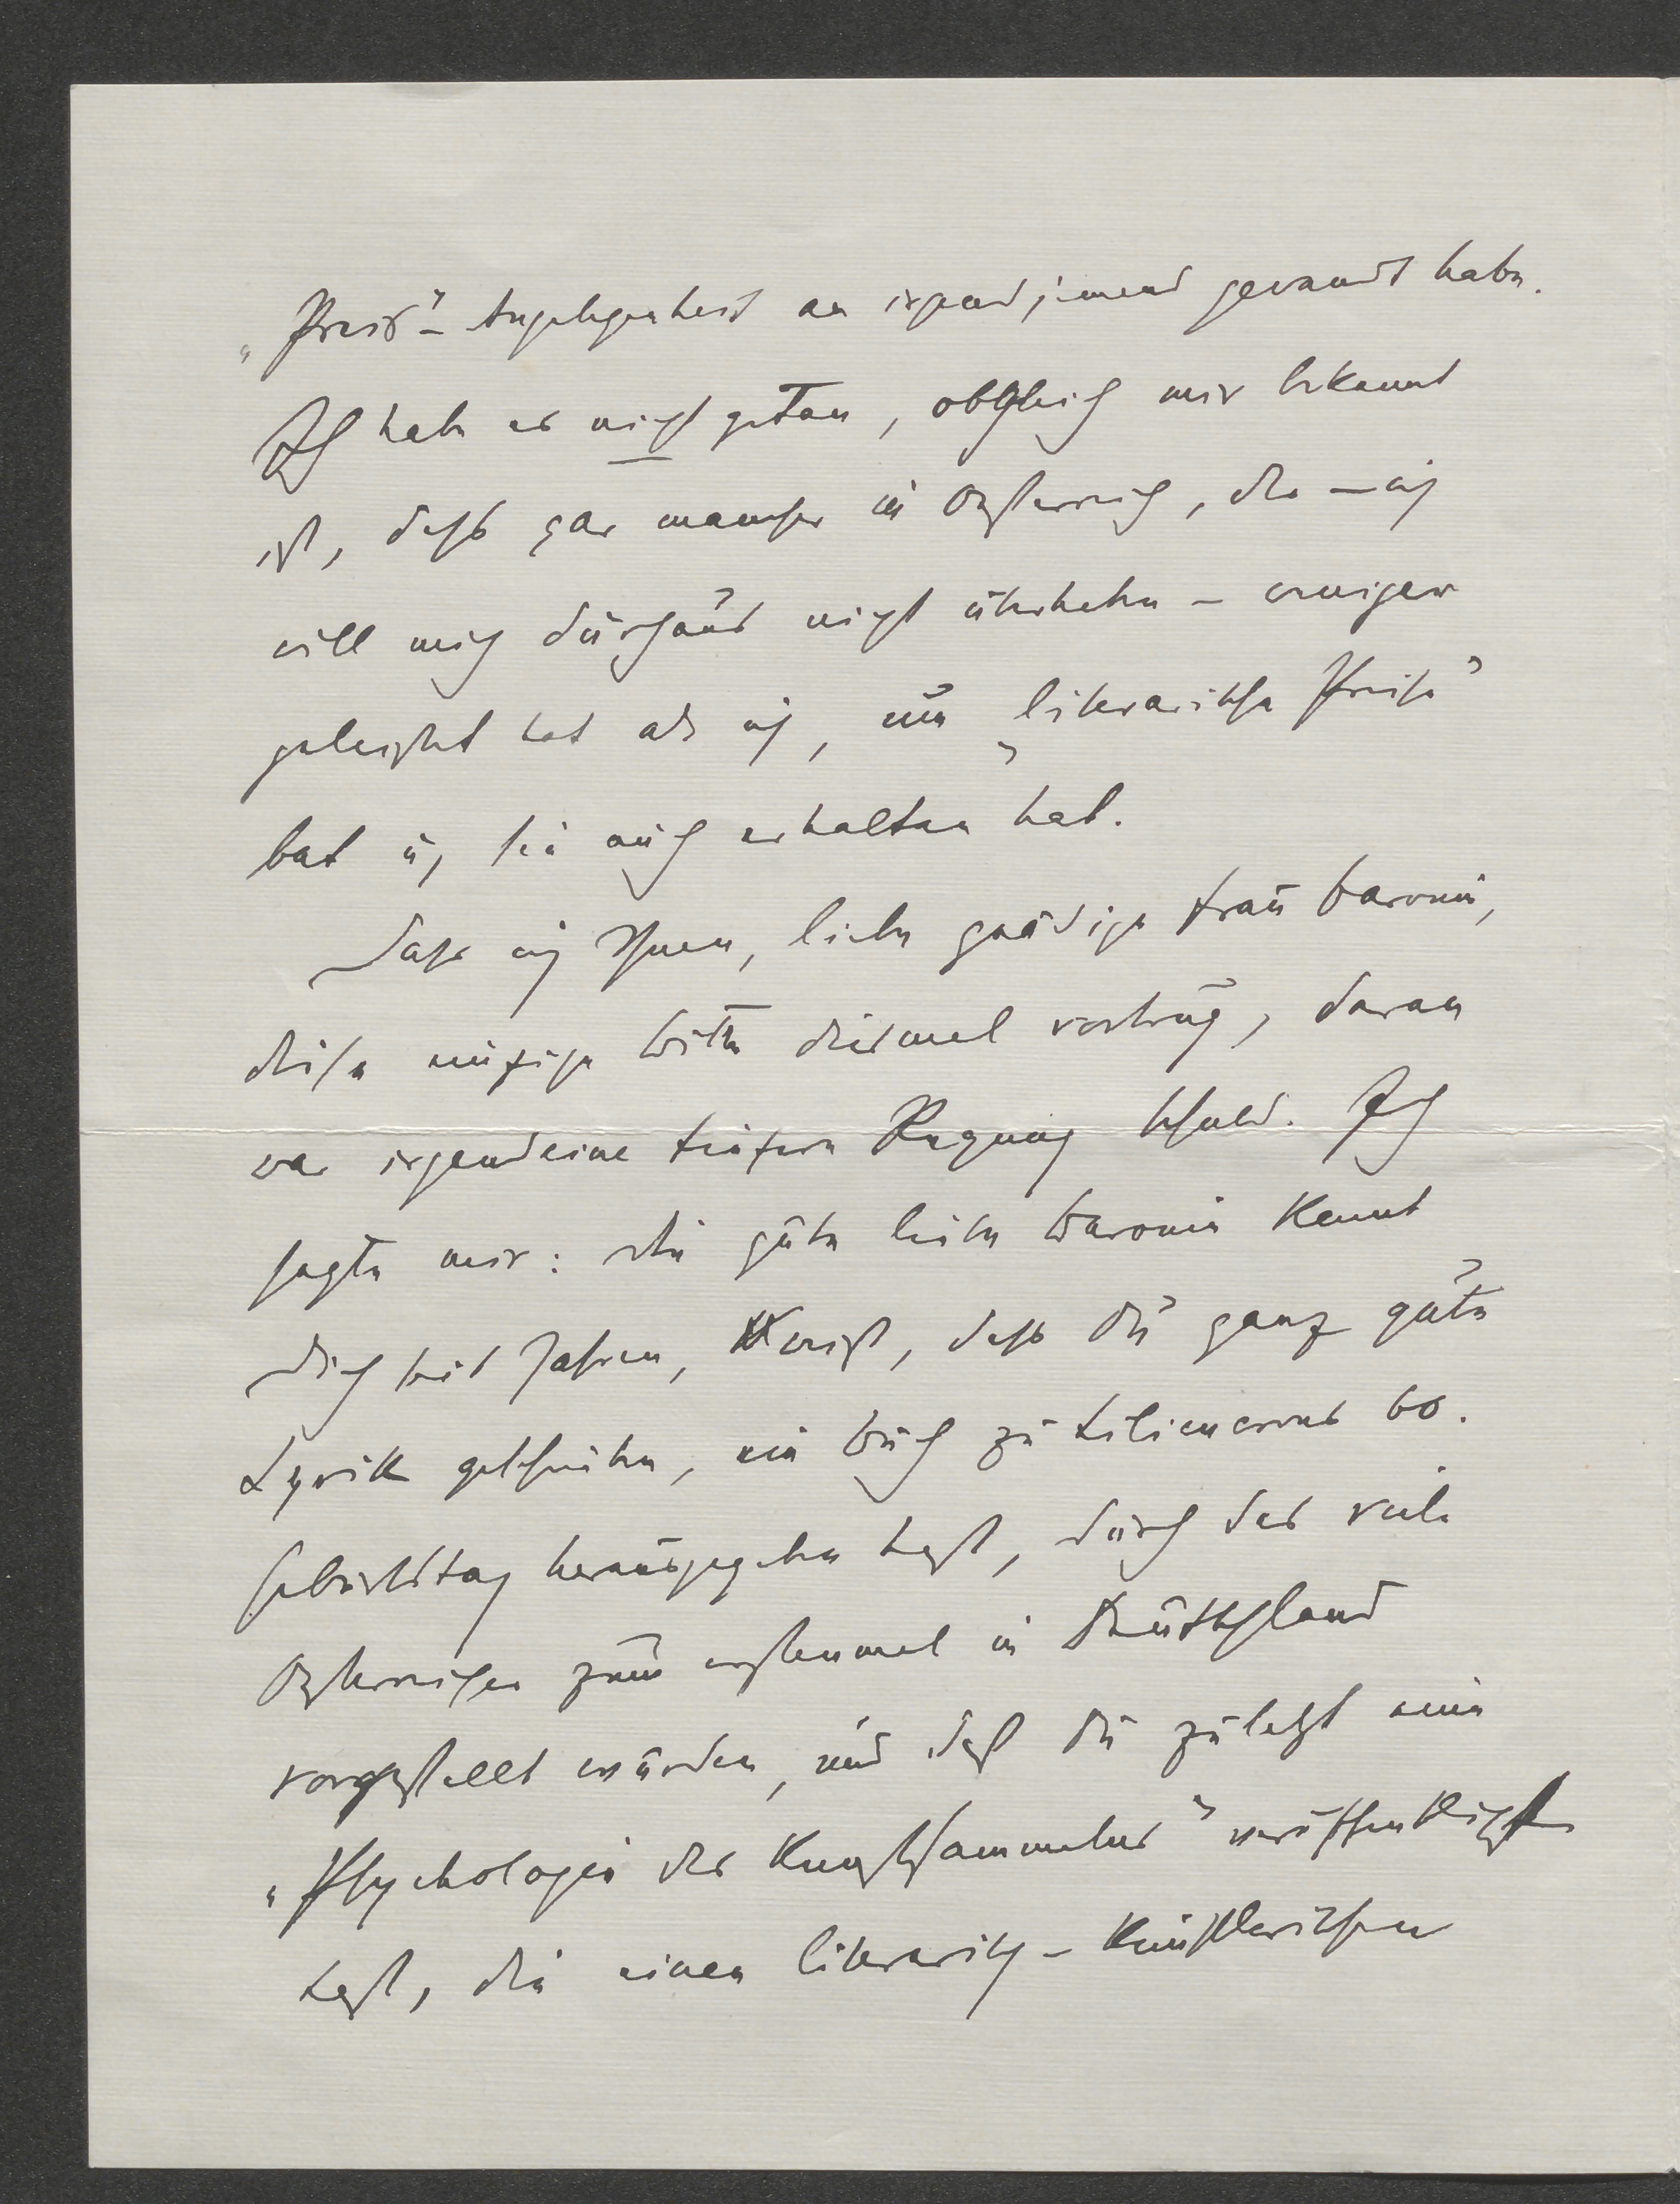 „Preis"-Angelegenheit an irgend jemand gewandt habe.
Ich habe es nicht getan, obgleich mir bekannt
ist, dass gar mancher in Österreich, der – ich
will mich durchaus nicht überheben – weniger
geleistet hat als ich, um „literarische Preise"
bat u, sie auch erhalten hat.
Dass ich Ihnen, liebe gnädige Frau Baronin,
diese einzige Bitte diesmal vortrug, daran
war irgendeine tiefere Regung schuld. Ich
sagte mir: die gute liebe Baronin kennt
dich seit Jahren, weiß, dass du ganz gute
Lyrik geschrieben, ein Buch zu Liliencrons 60.
Geburtstag herausgegeben hast, durch das viele
Österreicher zum erstenmal in Deutschland
vorgestellt wurden, und dass du zuletzt eine
„Psychologie des Kunstsammelns" veröffentlicht
hast, die einen literarisch-künstlerischen